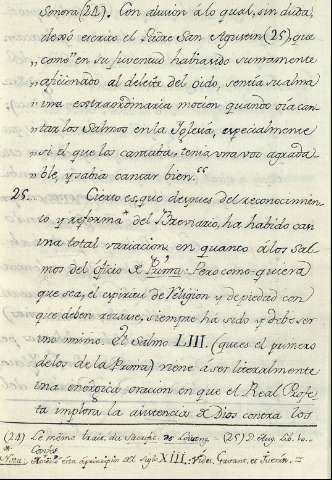 Señora (24). Con alusion à lo qual, sin duda,
dexó escrito el Padre San Agustin (25), que
„ como " en su juventud havia sido sumamente
„ aficionado al deleite del oido, sentia su alma
„ una extraordinaria mocion quando oìa can-
„ tar los Salmos en la Yglesia, especialmente
„ si el que los cantaba, tenia una voz agrada-
„ ble, y sabia cantar bien. "
25. Cierto es, que despues del reconocimien-
to y reforma del Breviario, ha habido casi
una total variacion en quanto à los Sal-
mos del Oficio de Prima. Pero como quiera
que sea, el espiritu de Religion y de piedad con
que deben rezarse, siempre ha sido y debe ser
uno mismo. El Salmo LIII. (que es el primero
de los de la Prima) viene à ser literalmente
una enérgica oracion en que el Real Profe-
ta implora la asistencia de Dios contra los
(24) Le mesme traic. du de (25) D. Aug. lib. 10.
Confes.
Nota. esta à principios del siglo XIII. Vide,